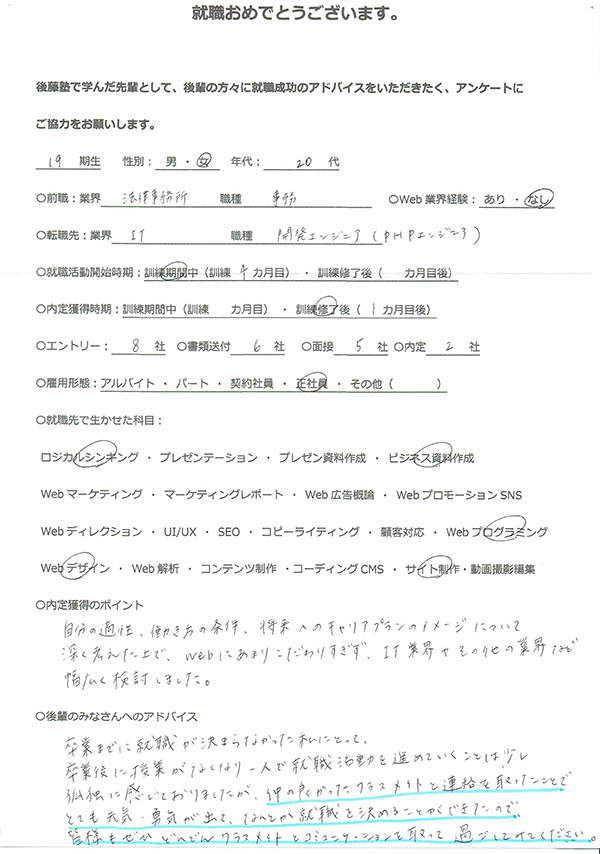 就職おめでとうございます。
後藤塾で学んだ先輩として、後輩の方々に就職成功のアドバイスをいただきたく、アンケートに
ご協力をお願いします。
19 期生 性別： 男 ・ 女 年代： 20 代
○前職：業界 法律事務所 職種 事務 ○Web業界経験： あり ・ なし
○転職先：業界 IT 職種 開発エンジニア（PHPエンジニア）
○就職活動開始時期：訓練期間中（訓練 4 カ月目） ・ 訓練修了後（ カ月目後）
○内定獲得時期：訓練期間中（訓練 カ月目） ・ 訓練修了後（ 1 カ月目後）
○エントリー： 8 社 ○書類送付 6 社 ○面接 5 社 ○内定 2 社
○雇用形態：アルバイト ・ パート ・ 契約社員 ・ 正社員 ・ その他（ ）
○就職先で生かせた科目：
ロジカルシンキング ・ プレゼンテーション ・ プレゼン資料作成 ・ ビジネス資料作成
Web マーケティング ・ マーケティングレポート ・ Web 広告概論 ・ Web プロモーション SNS
Web ディレクション ・ UI/UX ・ SEO ・ コピーライティング ・ 顧客対応 ・ Web プログラミング
Web デザイン ・ Web 解析 ・ コンテンツ制作 ・コーディング CMS ・ サイト制作・動画撮影編集
○内定獲得のポイント
自分の適性、働き方の条件、将来へのキャリアプランのイメージについて
深く考えた上で、Webにあまりこだわりすぎず、IT業界やその他の業界など
幅広く検討しました。
○後輩のみなさんへのアドバイス
卒業までに就職が決まらなかった私にとって、
卒業後に授業がなくなり一人で就職活動を進めていくことは少し
孤独に感じておりましたが、仲の良かったクラスメイトと連絡を取ったことで
とても元気・勇気が出て、なんとか就職を決めることができたので、
皆様もぜひどんどんクラスメイトとコミュニケーションを取って過ごしてみてください。